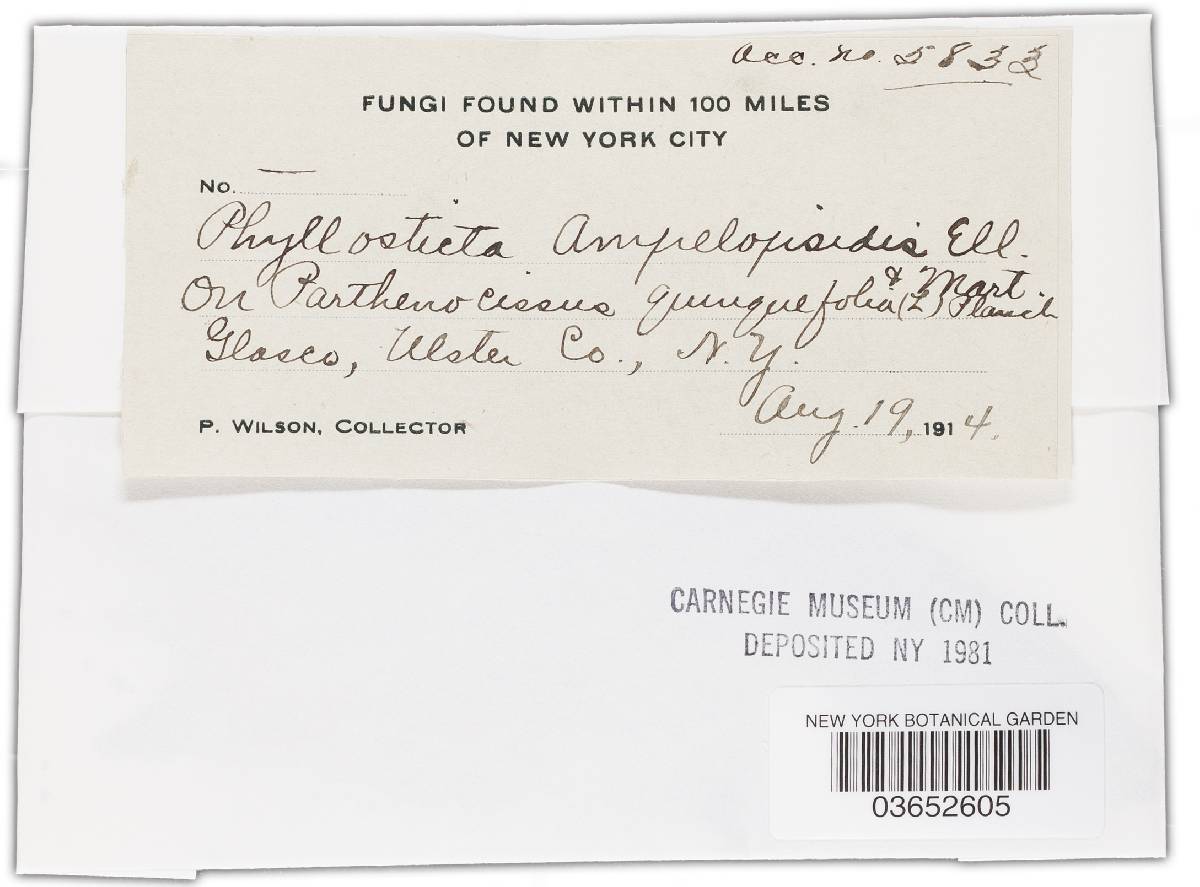 Acc. no. 5833
FUNGI FOUND WITHIN 100 MILES
OF NEW YORK CITY
No. —
Phyllosticta Ampelopsidis Ell.
& Mart.
On Parthenocissus quinquefolia (L) Planch
Glasco, Ulster Co., N.Y.
Aug. 19, 1914.
P. WILSON, COLLECTOR
CARNEGIE MUSEUM (CM) COLL.
DEPOSITED NY 1981
NEW YORK BOTANICAL GARDEN
03652605